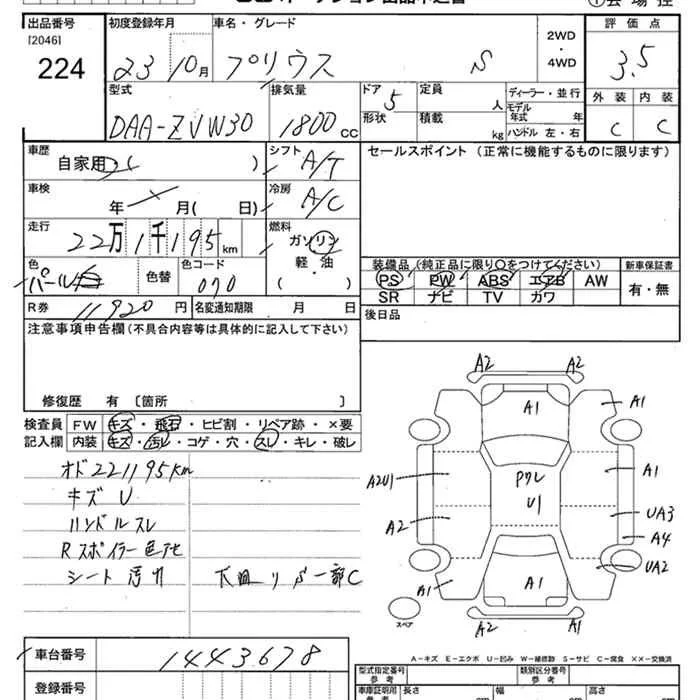 出品番号
[2046]
224
初度登録年月
23 10月
車名・グレード
プリウス S
2WD
・
4WD
評価点
3.5
外装 内装
C C
型式
DAA-ZVW30
排気量
1800 CC
ドア 5
形状
定員 人
積載 kg
ディーラー・並行
モデル
年式 年
ハンドル 左・右
車歴
自家用・( )
シフト A/T
セールスポイント (正常に機能するものに限ります)
車検
年 月(日)
冷房 A/C
走行
22万1千195km
燃料
ガソリン
軽・油
( )
色
パール白
色替
色コード
070
装備品(純正品に限り○をつけてください)
PS PW ABS エアB AW
SR ナビ TV カワ
新車保証書
有・無
R券 11920 円
名変通知期限 月 日
後日品
注意事項申告欄(不具合内容等は具体的に記入して下さい)
修復歴 有 [箇所 ]
検査員
記入欄
FW キズ・飛石・ヒビ割・リペア跡・×要
内装 キズ・汚レ・コゲ・穴・スレ・キレ・破レ
オド221195km
キズ U
ハンドルスレ
Rスポイラー色アセ
シート汚レ
A2 A2
A1
A1
A2U1
A2
Pクレ
U1
A1
UA3
A4
UA2
A1
A1
A2 A1
スペア
A-キズ E-エクボ U-凹み W-補修跡 S-サビ C-腐食 ××-交換済
車台番号
1443678
登録番号
型式指定番号
参考
類別区分番号
参考
車庫証明用
参考
長さ cm
幅 cm
高さ cm